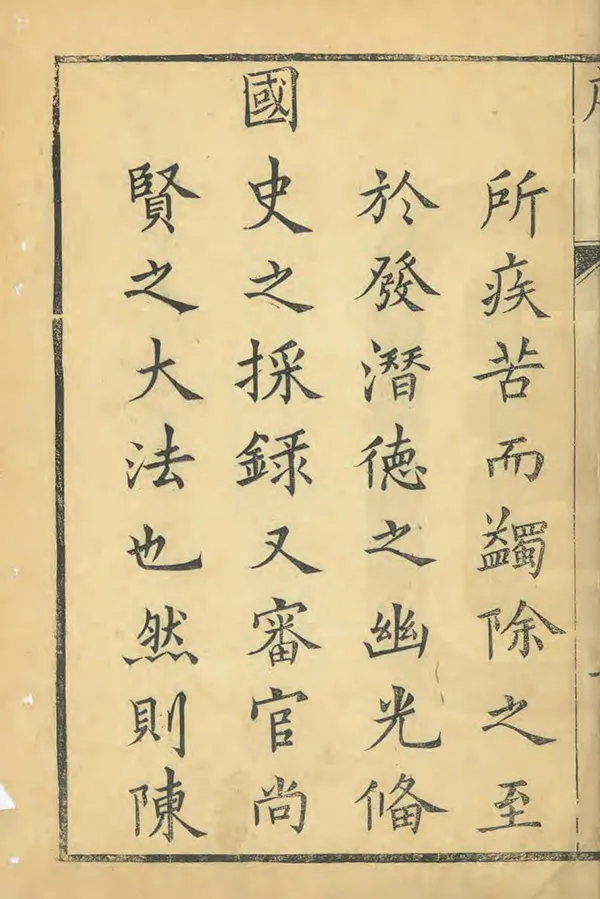 所疾苦而蠲除之至
於發潛德之幽光偹
國史之採録又審官尚
賢之大法也然則陳